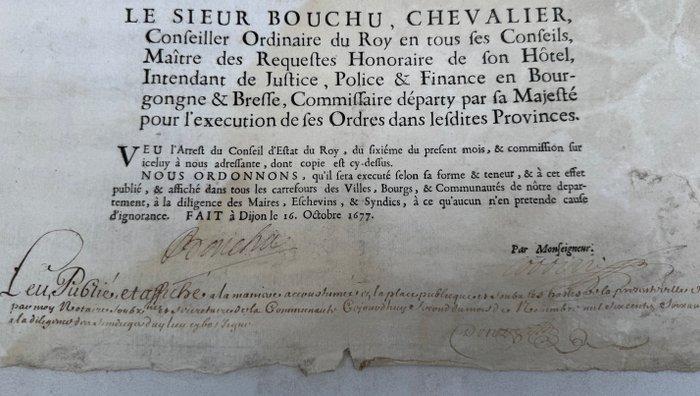 LE SIEUR BOUCHU, CHEVALIER,
Conſeiller Ordinaire du Roy en tous ſes Conſeils,
Maître des Requeſtes Honoraire de ſon Hôtel,
Intendant de Juſtice, Police & Finance en Bour-
gongne & Breſſe, Commiſſaire départy par ſa Majeſté
pour l'execution de ſes Ordres dans leſdites Provinces.
VEU l'Arreſt du Conſeil d'Eſtat du Roy, du ſixiéme du preſent mois, & commiſſion ſur
iceluy à nous adreſſante, dont copie eſt cy-deſſus.
NOUS ORDONNONS, qu'il ſera executé ſelon ſa forme & teneur, & à cet effet
publié, & affiché dans tous les carrefours des Villes, Bourgs, & Communautés de nôtre depar-
tement, à la diligence des Maires, Eſchevins, & Syndics, à ce qu'aucun n'en pretende cauſe
d'ignorance. FAIT à Dijon le 16. Octobre 1677.
Bouchu
Par Monſeigneur:
Leu, Publié, et affiché a la maniere accoustumée, a la place publique et soubs les halles de la presente ville
par moy Notaire et secretaire de la Communauté second du mois de Novembre mil six cents
a la diligence des